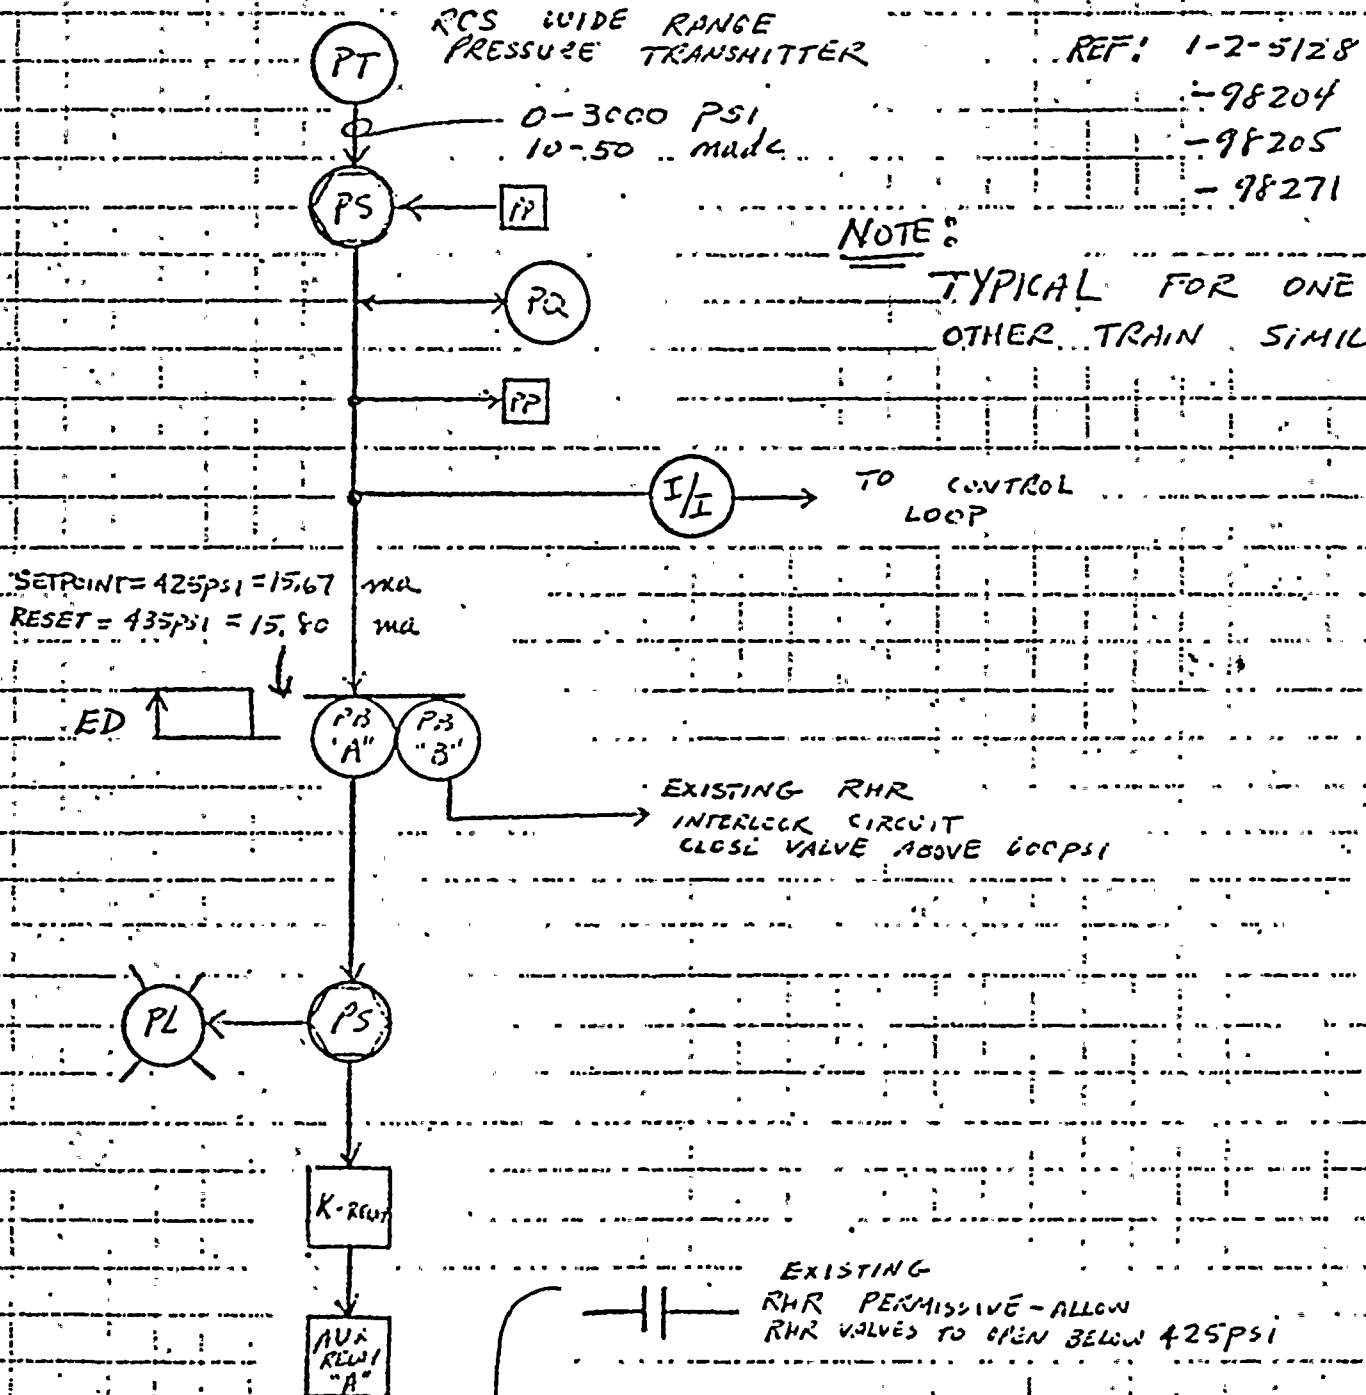 RCS WIDE RANGE
PRESSURE TRANSMITTER
PT
REF: 1-2-5128
-98204
-98205
-98271
0-3000 PSI
10-50 madc
PS
PP
NOTE:
TYPICAL FOR ONE
OTHER TRAIN SIMIL
PQ
PP
I/I
TO CONTROL
LOOP
SETPOINT = 425psi = 15.67 ma
RESET = 435psi = 15.80 ma
ED
PB
"A"
PB
"B"
EXISTING RHR
INTERLOCK CIRCUIT
CLOSE VALVE ABOVE 600PSI
PL
PS
K-RELAY
EXISTING
RHR PERMISSIVE-ALLOW
RHR VALVES TO OPEN BELOW 425PSI
AUX
RELAY
"A"